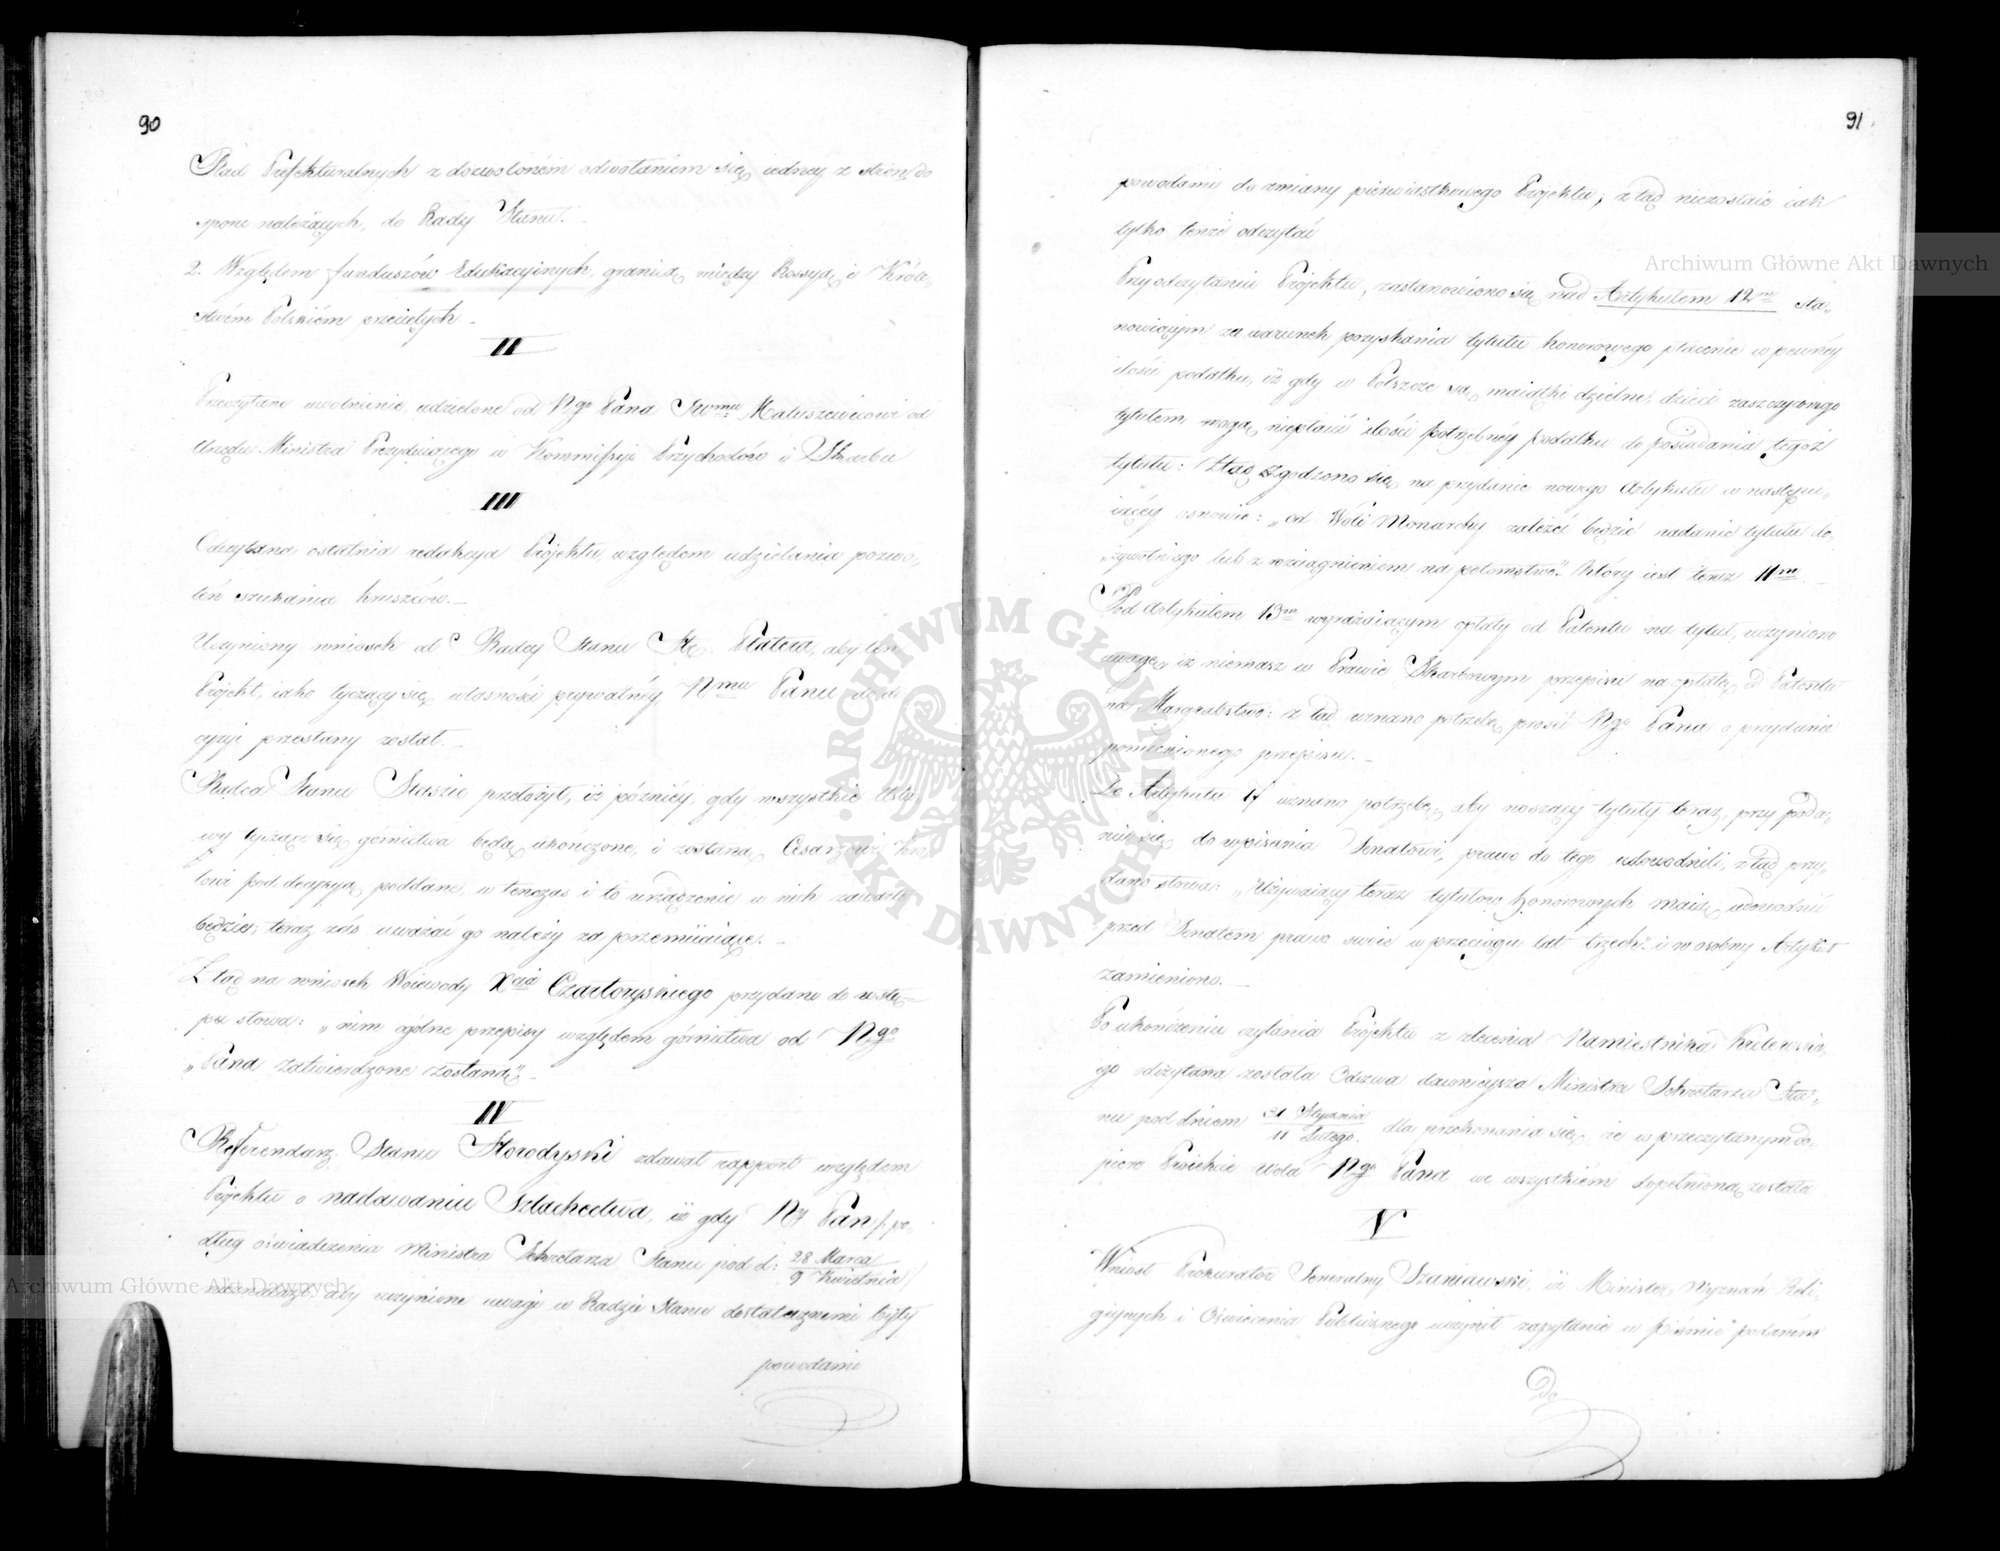 90
Rad Prefekturalnych z dozwoloném odwołaniem się iedney z stron do
sporu należących, do Rady Stanu.
2. Względem funduszów Edukacyinych, granicą między Rossyą i Króle,
stwém Polskiém przeciętych _
II
Przeczytane uwolnienie udzielone od Ngo Pana JWmu Matuszewicowi od
Urzędu Ministra Prezyduiącego w Kommissyi Przychodów i Skarbu
III
Odczytana ostatnia redakcya Projektu, względem udzielania pozwo,
leń szukania kruszców. _
Uczyniony wniosek od Radcy Stanu Hr. Platera, aby ten
Projekt, iako tyczący się własności prywatnéy Nmu Panu do de
cyzyi przesłany został. _
Radca Stanu Staszic przełożył, iż późniéy, gdy wszystkie Usta,
wy tyczące się górnictwa będą ukończone, i zostaną Cesarzowi Kró
lowi pod decyzyą poddane, w tenczas i to urządzenie w nich zawarte
będzie; teraz zaś uważać go należy za przemiiaiące. _
Z tąd na wniosek Woiewody Xcia Czartoryskiego przydano do wstę,
pu słowa: „nim ogólne przepisy względem górnictwa od Ngo
„Pana zatwierdzone zostaną". _
IV
Referendarz Stanu Horodyski zdawał rapport względem
Projektu o nadawaniu Szlachectwa, iż gdy Ny Pan /: po,
dług oświadczenia Ministra Sekretarza Stanu pod d: 28 Marca / 9 Kwietnia
aby uczynione uwagi w Radzie Stanu dostatecznemi były
powodami
91
powodami do zmiany pierwiastkowego Projektu; z tąd niezostaie iak
tylko tenże odczytać
Przy odczytaniu Projektu, zastanowiono się nad Artykułem 12m sta,
nowiącym za warunek pozyskania tytułu honorowego płacenie w pewnéy
ilości podatku, iż gdy w Polszcze są maiątki dzielne, dzieci zaszczyconego
tytułem mogą niepłacić ilości potrzebnéy podatku do posiadania tegoż
tytułu: Ztąd zgodzono się na przydanie nowego Artykułu w następu,
iącéy osnowie: „od Woli Monarchy zależeć będzie nadanie tytułu do,
„żywotniego lub z rozciągnieniem na potomstwo". Który iest teraz 11m _
Pod Artykułem 13m wyrażaiącym opłaty od Patentu na tytuł, uczyniono
uwagę, iż niemasz w Prawie Skarbowym przepisu na opłatę od Patentu
na Margrabstwo: z tąd uznano potrzebę prosić Ngo Pana o przydanie
pomienionego przepisu. _
Do Artykułu 17 uznano potrzebę, aby noszący tytuły teraz, przy poda,
niu się do wpisania Senatowi, prawo do tego udowodnili, ztąd przy
dano słowa: „Używaiący teraz tytułów honorowych maią udowodnić
przed Senatem prawo swoie w przeciągu lat trzech". i w osobny Artykuł
zamieniono. _
Po ukończeniu czytania Projektu z zlecenia Namiestnika Królewskie,
go odczytana została Odezwa dawnieysza Ministra Sekretarza Sta,
nu pod dniem 31 Stycznia / 11 Lutego. dla przekonania się, że w przeczytanym do,
piero Proiekcie Wola Ngo Pana we wszystkiém dopełnioną została
V
Wniósł Prokurator Generalny Szaniawski, iż Minister Wyznań Reli,
giynych i Oświecenia Publicznego uczynił zapytanie w piśmie podaném
Do
Archiwum Główne Akt Dawnych
Archiwum Główne Akt Dawnych
ARCHIWUM GŁÓWNE AKT DAWNYCH